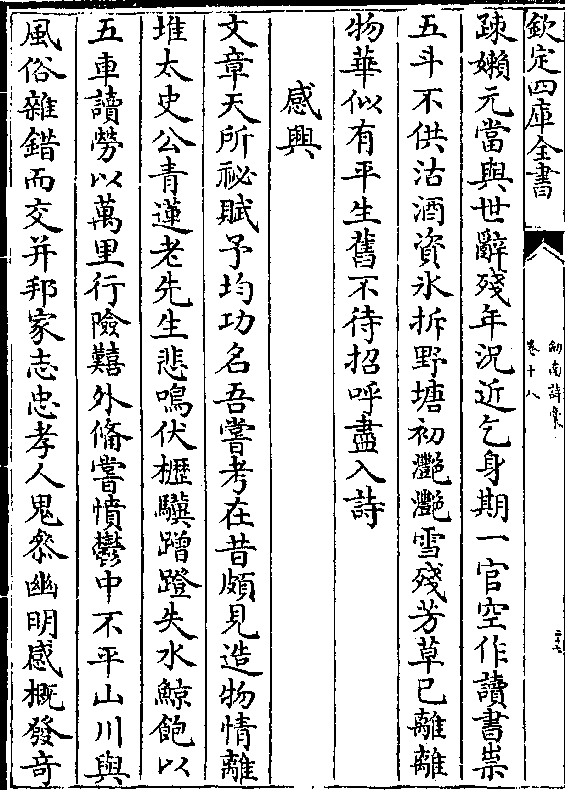 欽定四庫全書
劔南詩槀
卷十八
二十七
踈嬾元當與世辭殘年況近乞身期一官空作讀書祟
五斗不供沽酒資氷拆野塘初灔灔雪殘芳草已離離
物華似有平生舊不待招呼盡入詩
感興
文章天所祕賦予均功名吾嘗考在昔頗見造物情離
堆太史公青蓮老先生悲鳴伏櫪驥蹭蹬失水鯨飽以
五車讀勞以萬里行險囏外備嘗憤鬱中不平山川與
風俗雜錯而交并邦家志忠孝人鬼叅幽明感概發竒